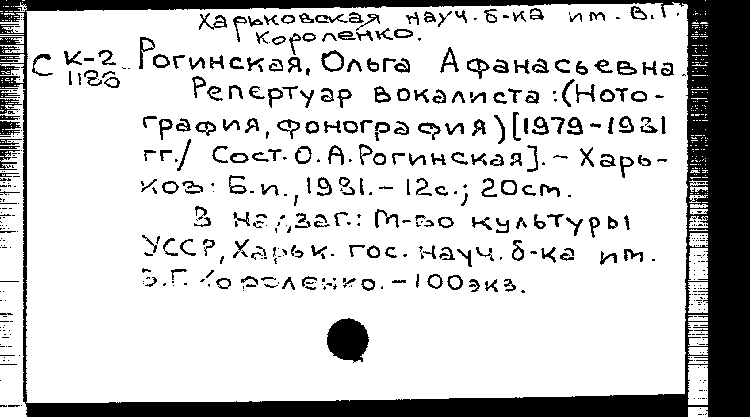 Харьковская науч. б-ка им. В.Г.
Короленко.
С К-2 Рогинская, Ольга Афанасьевна
1186
Репертуар вокалиста: (Ното-
графия, фонография) [1979-1981
гг./ Сост. О.А. Рогинская]. - Харь-
ков: Б.и., 1981. - 12с.; 20см.
В надзаг.: М-во культуры
УССР, Харьк. гос. науч. б-ка им.
В.Г. Короленко. - 100экз.